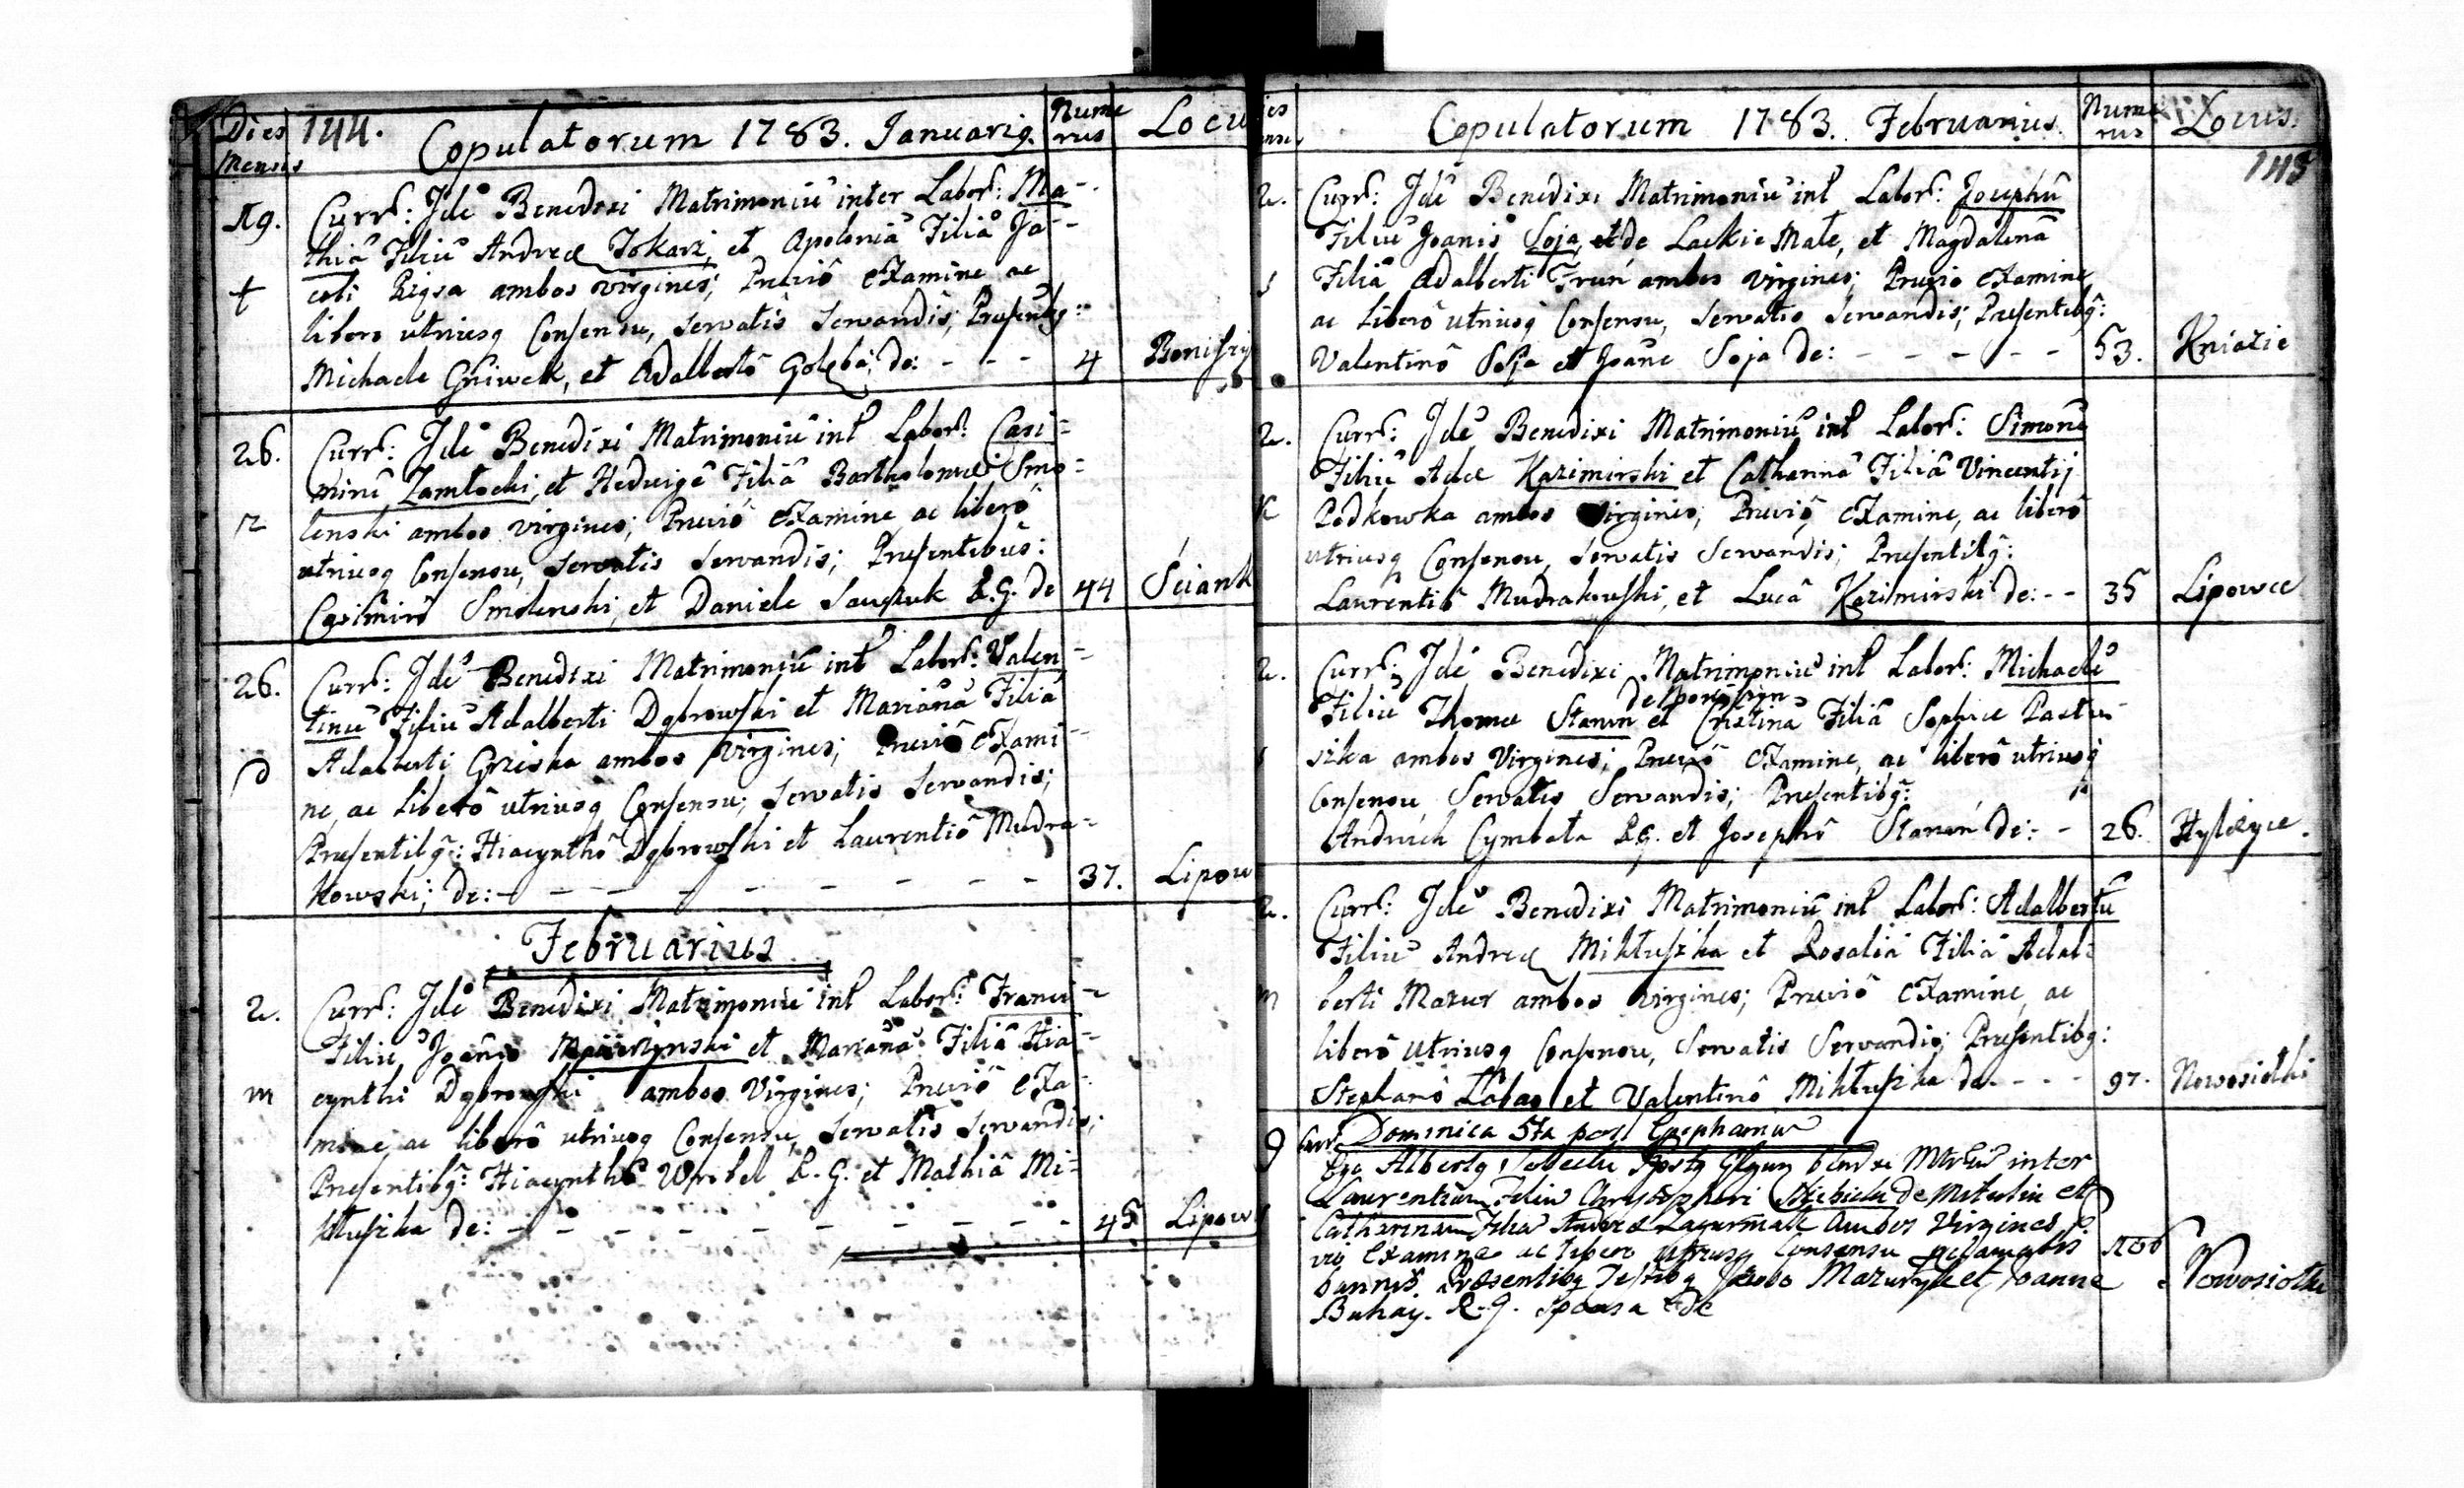 Dies Mensis
144.
Copulatorum 1783. Januarig.
Nume rus
Locu
19.
Curr: Jdē Benedixi Matrimoniū inter Labor: Ma-
thiā Filiū Andreæ Tokarz, et Apoloniā Filiā Ja-
t
cobi Rigsa ambos virgines; Previô Examine ac
libero utriusq Consensu, servatis servandis; Presentibg:
Michaele Gniwek, et Adalbertô Golęba; de: - - -
4
26.
Curr: Jdē Benedixi Matrimoniū int Labor: Casi=
mirū Zamłocki, et Hedvigē Filiā Bartholomæi Smo=
z
lenski ambos virgines; Previô Examine, ac liberô
utriusq Consensu, servatis servandis; Presentibus:
Casimirô Smolenski, et Daniele R. G. de
44
Sciank
26.
Curr: Jdē Benedixi Matrimoniū int Labor: Valen=
tinū Filiū Adalberti Dąbrowski et Marianā Filiā
D
Adalberti Grziska ambos virgines; Previô Exami-
ne, ac liberô utriusq Consensu; servatis servandis;
Presentibg: Hiacynthô Dąbrowski et Laurentiô Mudra-
kowski; de: - - - - - - - -
37.
Lipow
Februarius
2.
Curr: Jdē Benedixi Matrimoniū int Labor: Franci-
Filiū Joānis et Marianā Filiā Hia-
m
cynthi Dąbrowski ambos Virgines; Previô Exa-
mine, ac liberô utriusq Consensu, servatis servandis;
Presentibg: Hiacynthô Wrobel R. G. et Mathiā Mi-
kłuszka de: - - - - - - - -
45
Lipow
Copulatorum 1783. Februarius.
Nume rus
Locus.
145
2.
Curr: Jdē Benedixi Matrimoniū int Labor: Josephū
Filiū Joanis Soja, et de Lackie Małe, et Magdalenā
s
Filiā Adalberti Truń ambos virgines; Previo Examine
ac Liberô utriusq Consensu, Servatis Servandis; Presentibg:
Valentinô Soja et Joāne Soja de: - - - - -
53.
Kniazie
2.
Curr: Jdē Benedixi Matrimoniū int Labor: Simonē
Filiū Adæ Kazimirski et Catharinā Filiā Vincentij
K
Podkowka ambos virgines; Previô Examine, ac liberô
utriusq Consensu, servatis servandis; Presentibg:
Laurentiô Mudrakowski, et Lucā Kazimirski de: - -
35
Lipowce
2.
Curr: Jdē Benedixi Matrimoniū int Labor: Michaelē
Filiū Thomæ Stanin et Cristinā Filiā Sophiæ Pastu-
szka ambos Virgines; Previô Examine, ac liberô utriusq
Consensu Servatis Servandis; Presentibg:
Andruch Cymbała R G. et Josephô Stanin de: - -
26.
2.
Curr: Jdē Benedixi Matrimoniū int Labor: Adalbertū
Filiū Andreæ Mikłuszka et Rosaliā Filiā Adal-
m
berti Mazur ambos virgines; Previô Examine, ac
liberô utriusq Consensu, Servatis Servandis; Presentibg:
Stephanô Łabaz et Valentinô Mikłuszka de. - - -
97.
Nowosiołki
9
Curr Dominica 5ta post Epiphaniæ
inter
Laurentium Filiū Christophori de Mitulin et
Catharinam Filiā Andreæ ambos Virgines
vio Examine ac libero utriusq Consensu
bannis. Præsentibg Testibg Mazuryk et Joanne
Buhay. R. G. sponsa de
106
Nowosiołki